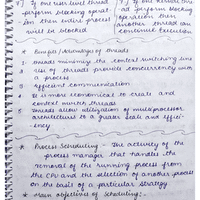 * If one user level thread
perform blocking operat-
ion then entire process
will be blocked
* If one kernel thr-
ead perform blocking
operation then
another thread can
continue execution
* Benefits/Advantages of threads
1 Threads minimize the context switching time
2 Use of threads provide concurrency with
a process
3 Efficient communication
4 It is more economical to create and
context switch threads
5 Threads allow utilization of multiprocessor
architectures to a greater scale and effici-
ency
* Process Scheduling :- The activity of the
process manager that handles the
removal of the running process from
the CPU and the selection of another process
on the basis of a particular strategy
* Main objectives of Scheduling :-